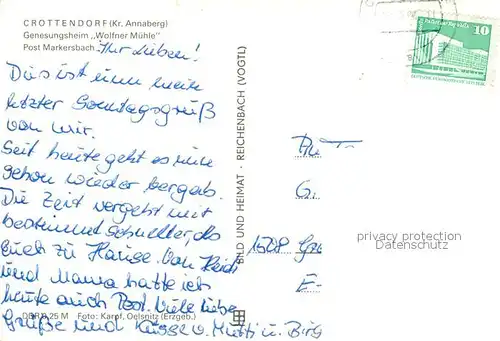 CROTTENDORF (Kr. Annaberg)
Genesungsheim „Wolfner Mühle"
Post Markersbach
Ihr Lieben!
Das ist nun mein
letzter Sonntagsgruß
von mir.
Seit heute geht es nun
schon wieder bergab.
Die Zeit vergeht mit
bestimmt schneller, als
Euch zu Hause. Von Heidi
und Mama hatte ich
heute auch Post. Viele liebe
Grüße und Küsse v. Mutti u. Birg
DDR 0,25 M Foto: Karpf, Oelsnitz (Erzgeb.)
BILD UND HEIMAT · REICHENBACH (VOGTL)
10
G.
1508
E-
privacy protection
Datenschutz